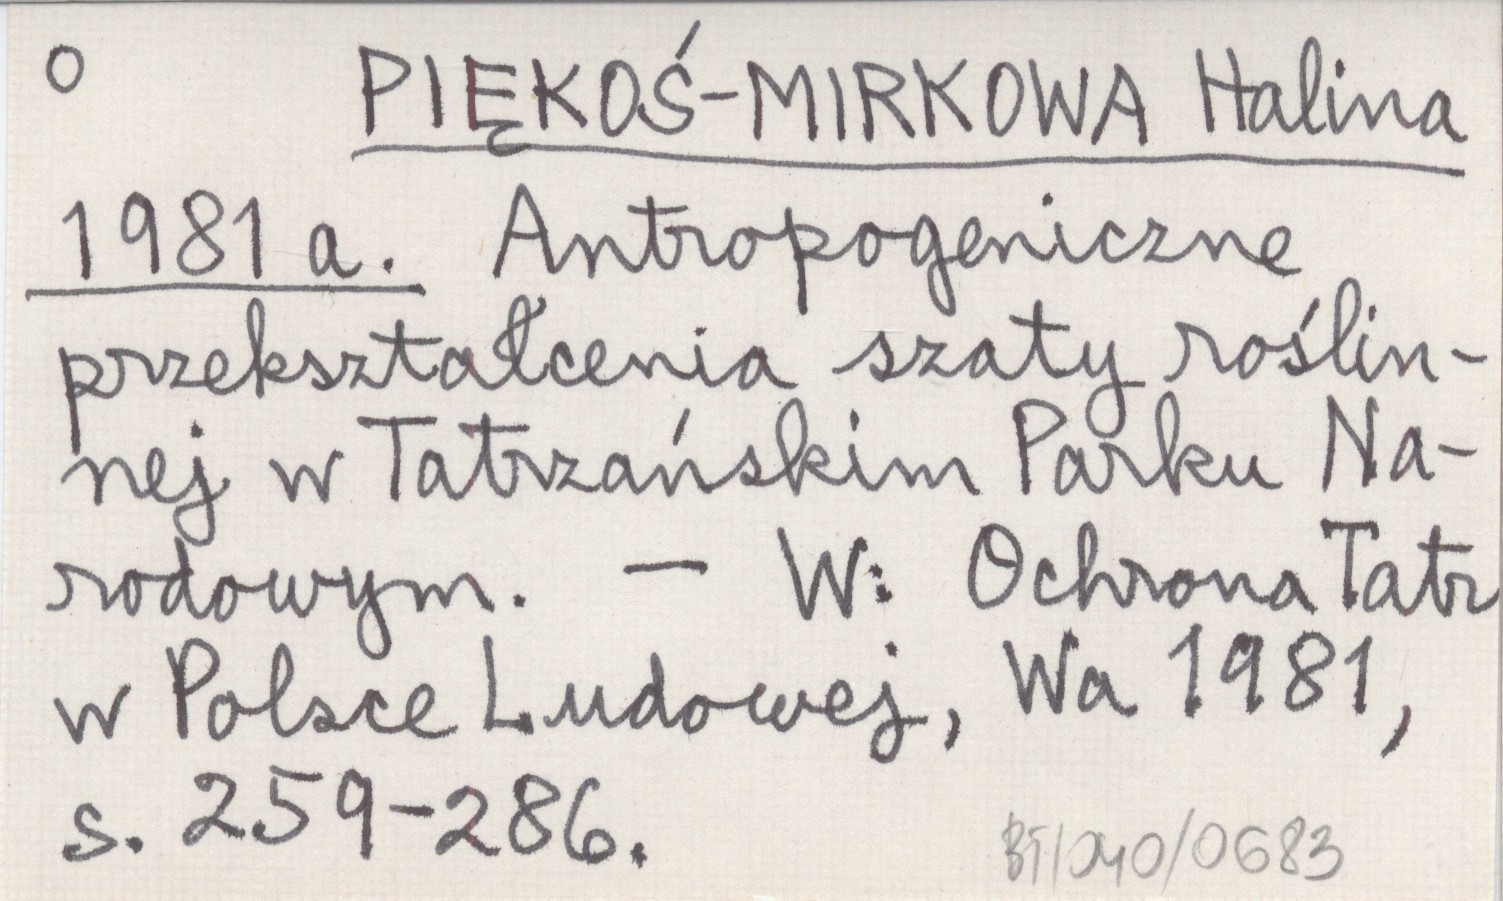 O PIĘKOŚ-MIRKOWA Halina
1981a. Antropogeniczne
przekształcenia szaty roślin-
nej w Tatrzańskim Parku Na-
rodowym. — W: Ochrona Tatr
w Polsce Ludowej, Wa 1981,
s. 259-286.
BT/040/0683